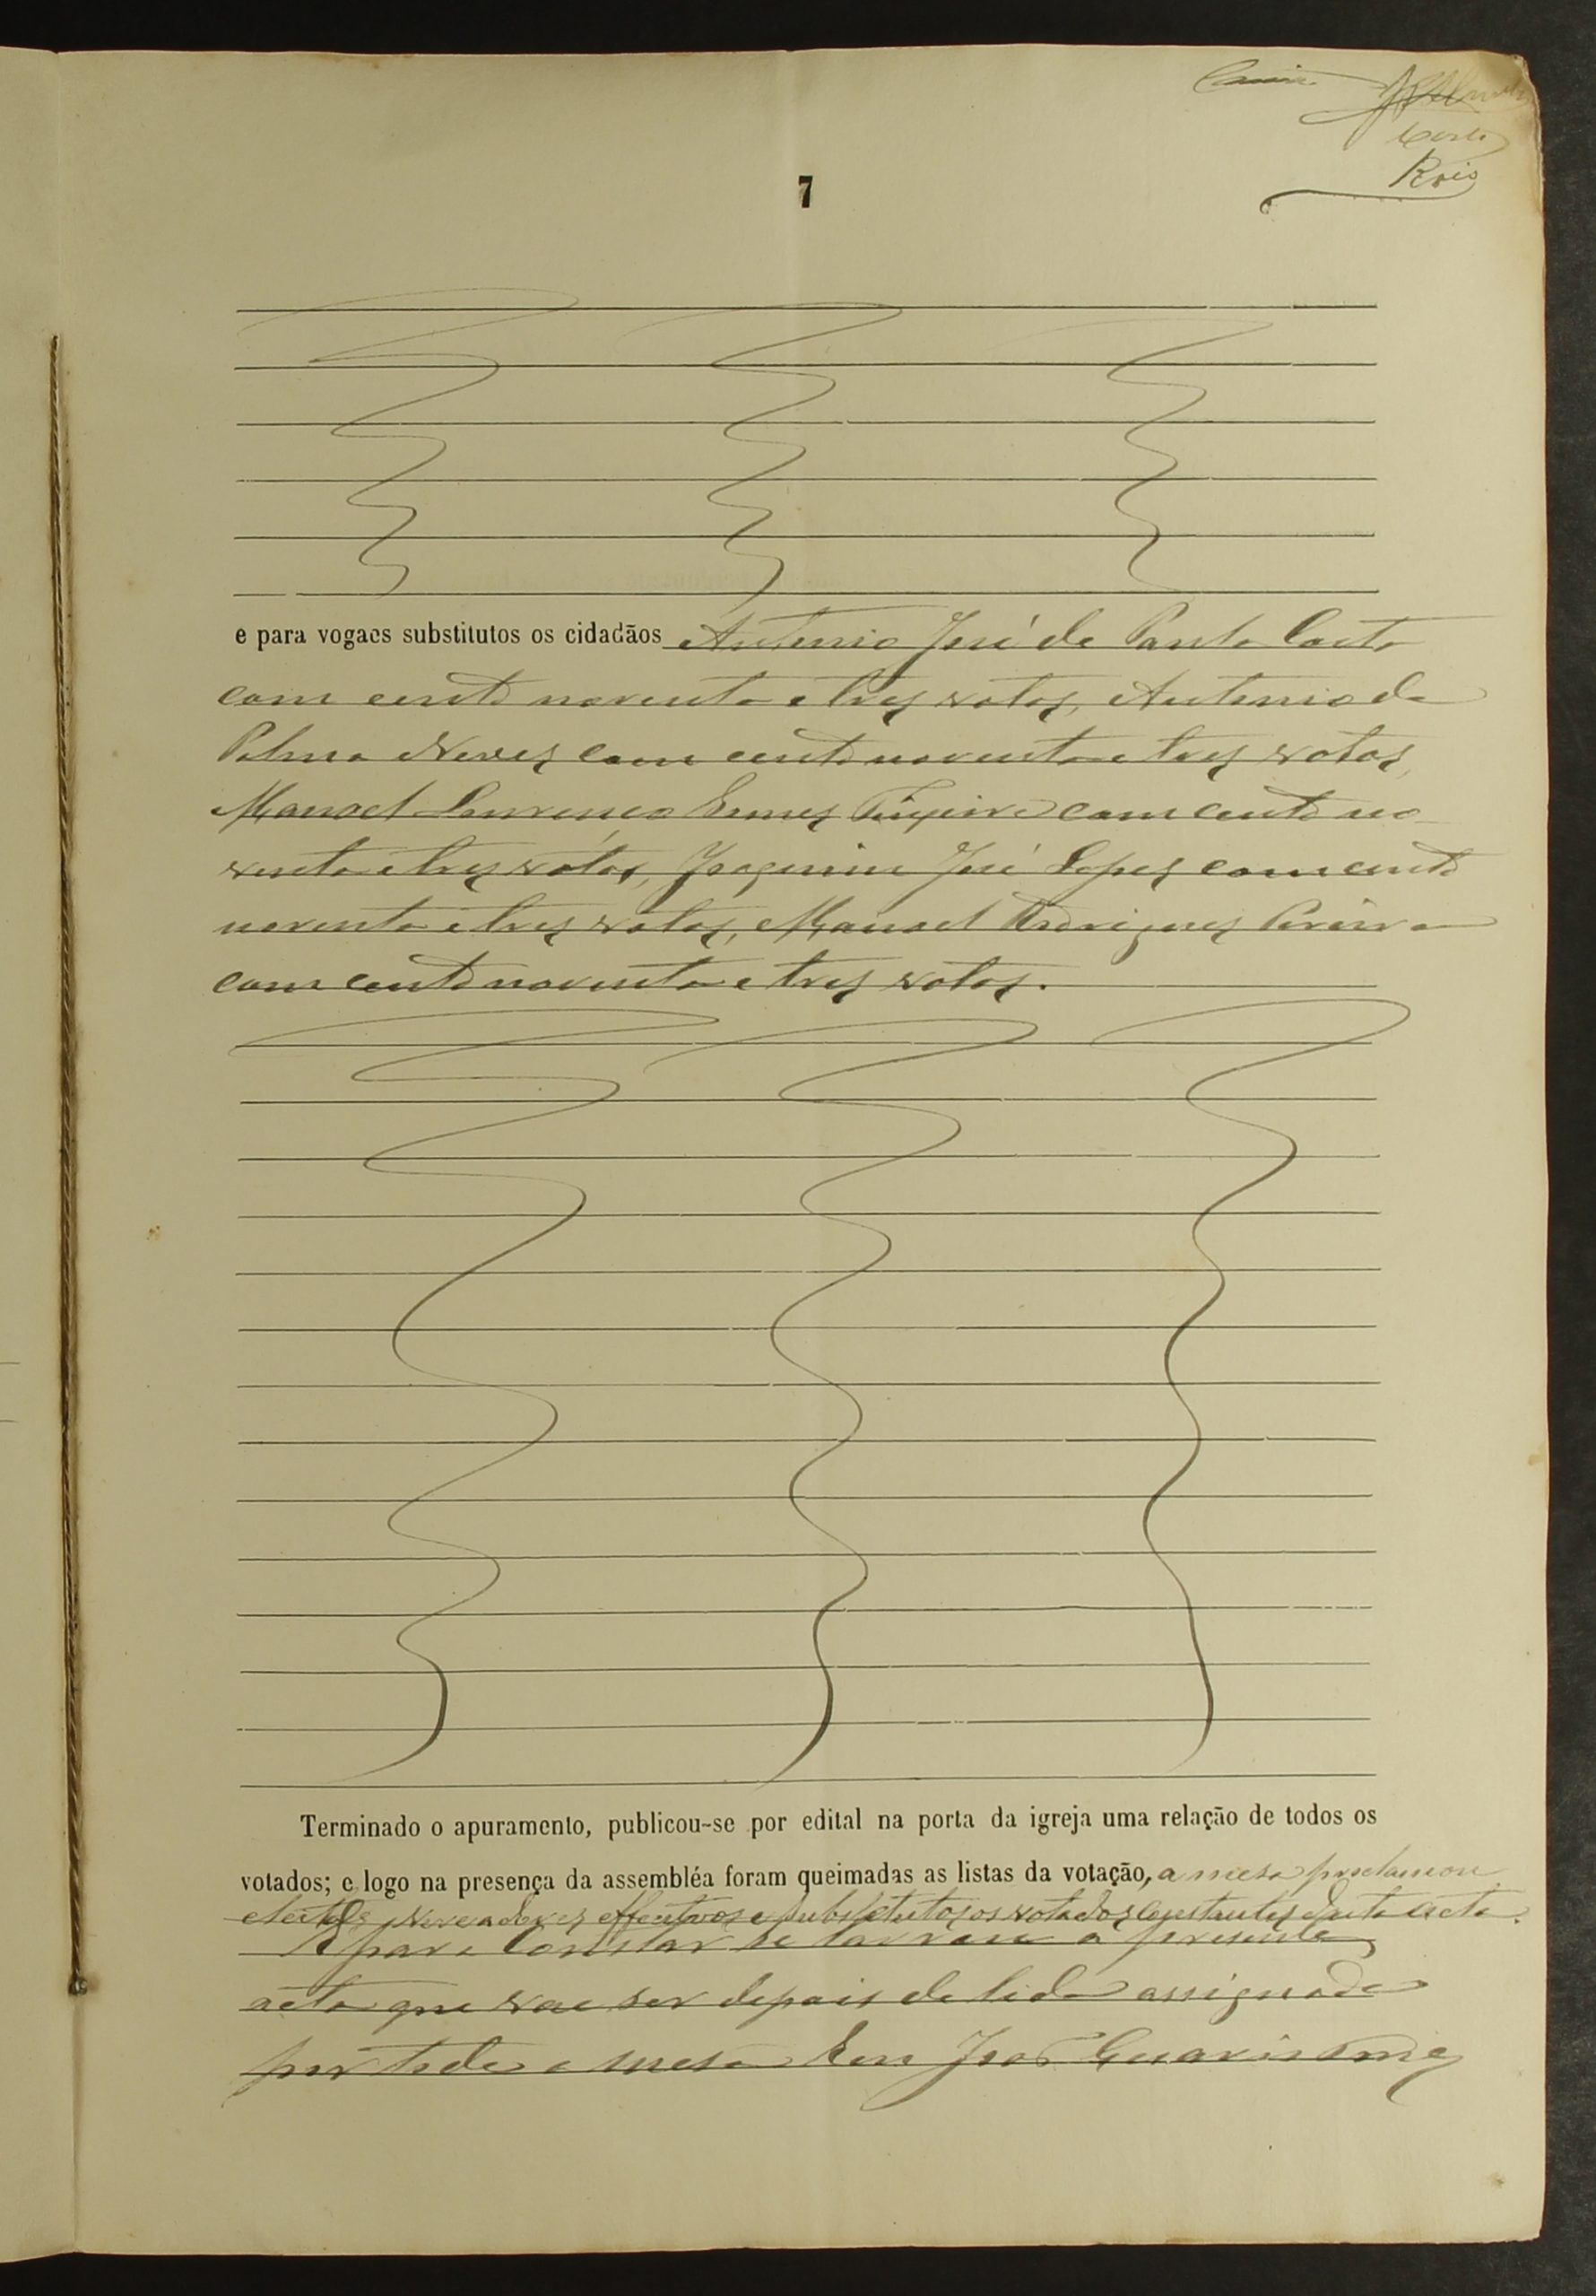 Costa
Reis
7
e para vogaes substitutos os cidadãos Antonio José de Paula Costa
com cento noventa e tres votos, Antonio da
Palma Neves com cento noventa e tres votos,
Manoel Lourenço Gomes com cento no-
venta e tres votos, Joaquim José Lopes com cento
noventa e tres votos, Manoel Rodrigues Pereira
com cento noventa e tres votos.
Terminado o apuramento, publicou-se por edital na porta da igreja uma relação de todos os
votados; e logo na presença da assembléa foram queimadas as listas da votação, a mesa proclamou
eleitos vereadores effectivos e substitutos os votados constantes d'esta acta.
E para constar se lavrou a presente
acta que vae ser depois de lida assignada
por toda a mesa Eu João